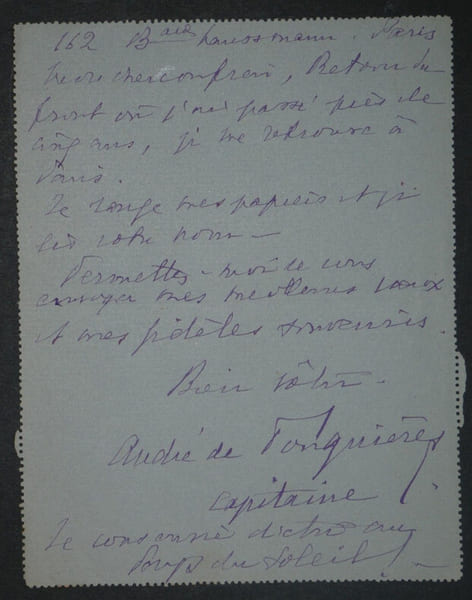 162 Bard haussmann. Paris
Mon cher confrère, Retour du
front où j'ai passé près de
cinq ans, je me retrouve à
Paris.
Je range mes papiers et j'y
lis votre nom —
Permettez-moi de vous
envoyer mes meilleurs vœux
et mes fidèles souvenirs.
Bien vôtre.
André de Fouquières
capitaine
Je
du Soleil